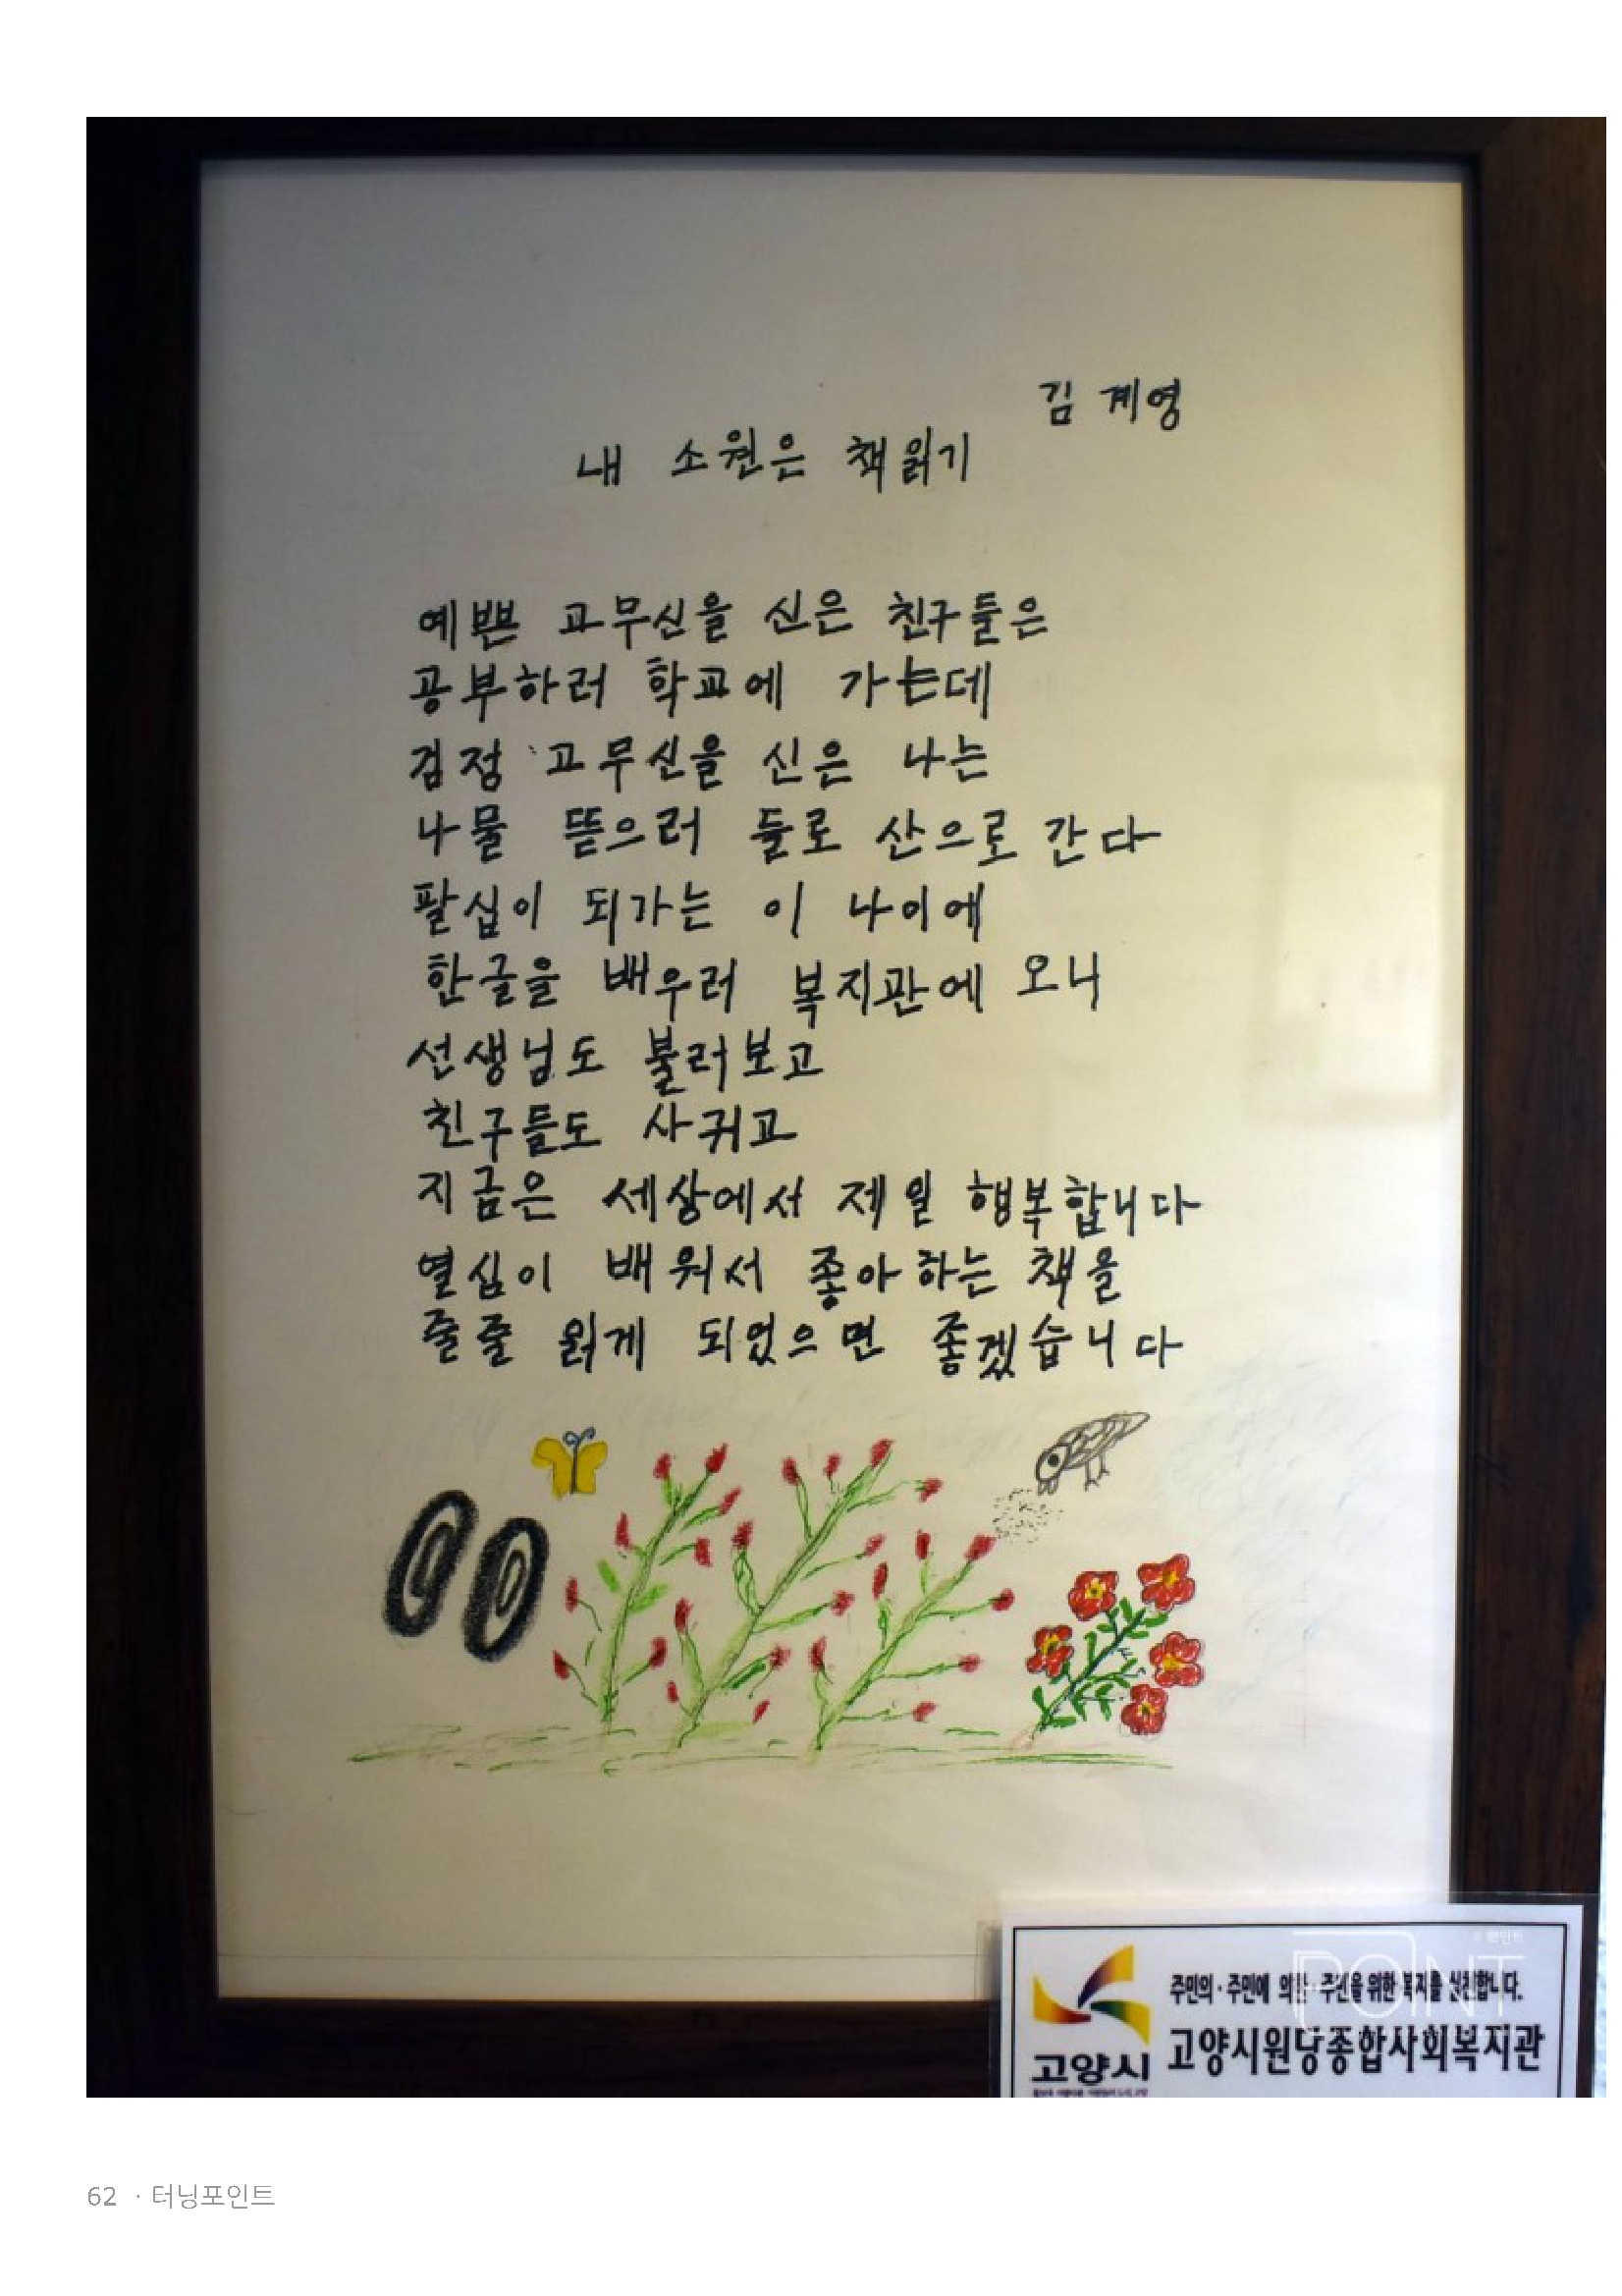 김 계영
내 소원은 책읽기
예쁜 고무신을 신은 친구들은
공부하러 학교에 가는데
검정 고무신을 신은 나는
나물 뜯으러 들로 산으로 간다
팔십이 되가는 이 나이에
한글을 배우러 복지관에 오니
선생님도 불러보고
친구들도 사귀고
지금은 세상에서 제일 행복합니다
열심이 배워서 좋아하는 책을
줄줄 읽게 되었으면 좋겠습니다
POINT
주민의·주민에 의한·주민을 위한 복지를 실천합니다.
고양시
고양시원당종합사회복지관
62 · 터닝포인트